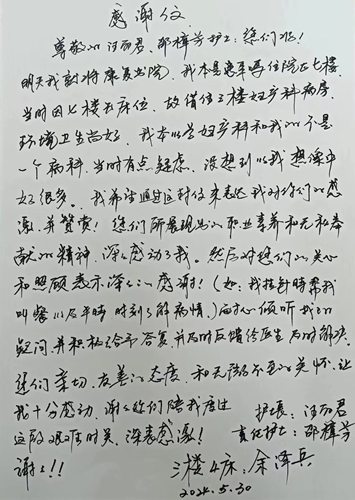 感谢信
尊敬的汪丽君、邵樟芬护士：您们好！
明天我就将康复出院，我本是患耳鸣住院在七楼，
当时因七楼无床位，故借住三楼妇产科病房，
环境卫生尚好，我本以为妇产科和我的不是
一个病科，当时有点疑虑，没想到比我想像中
好很多。我希望通过这封信来表达我对你们的感
激，并赞赏！您们所展现出的职业素养和无私奉
献的精神，深深感动了我。然后对您们的关心
和照顾表示深深的感谢！（如：我挂针时帮我
叫餐以及平时时刻了解病情，）耐心倾听我的
疑问，并积极给予答复，并及时反馈给医生及时解决。
您们亲切、友善的态度，和无微不至的关怀，让
我十分感动，谢谢你们陪我度过
这段艰难时光，深表感激！
谢谢！！
护士长：汪丽君
责任护士：邵樟芬
三楼4床：余泽兵
2024.5.30